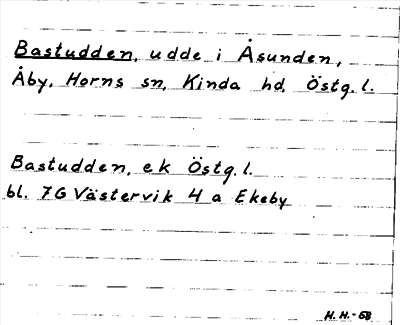 Bastudden, udde i Åsunden,
Åby, Horns sn, Kinda hd. Östg. l.
Bastudden, ek Östg. l.
bl. 7G Västervik 4 a Ekeby
H. H. - 68